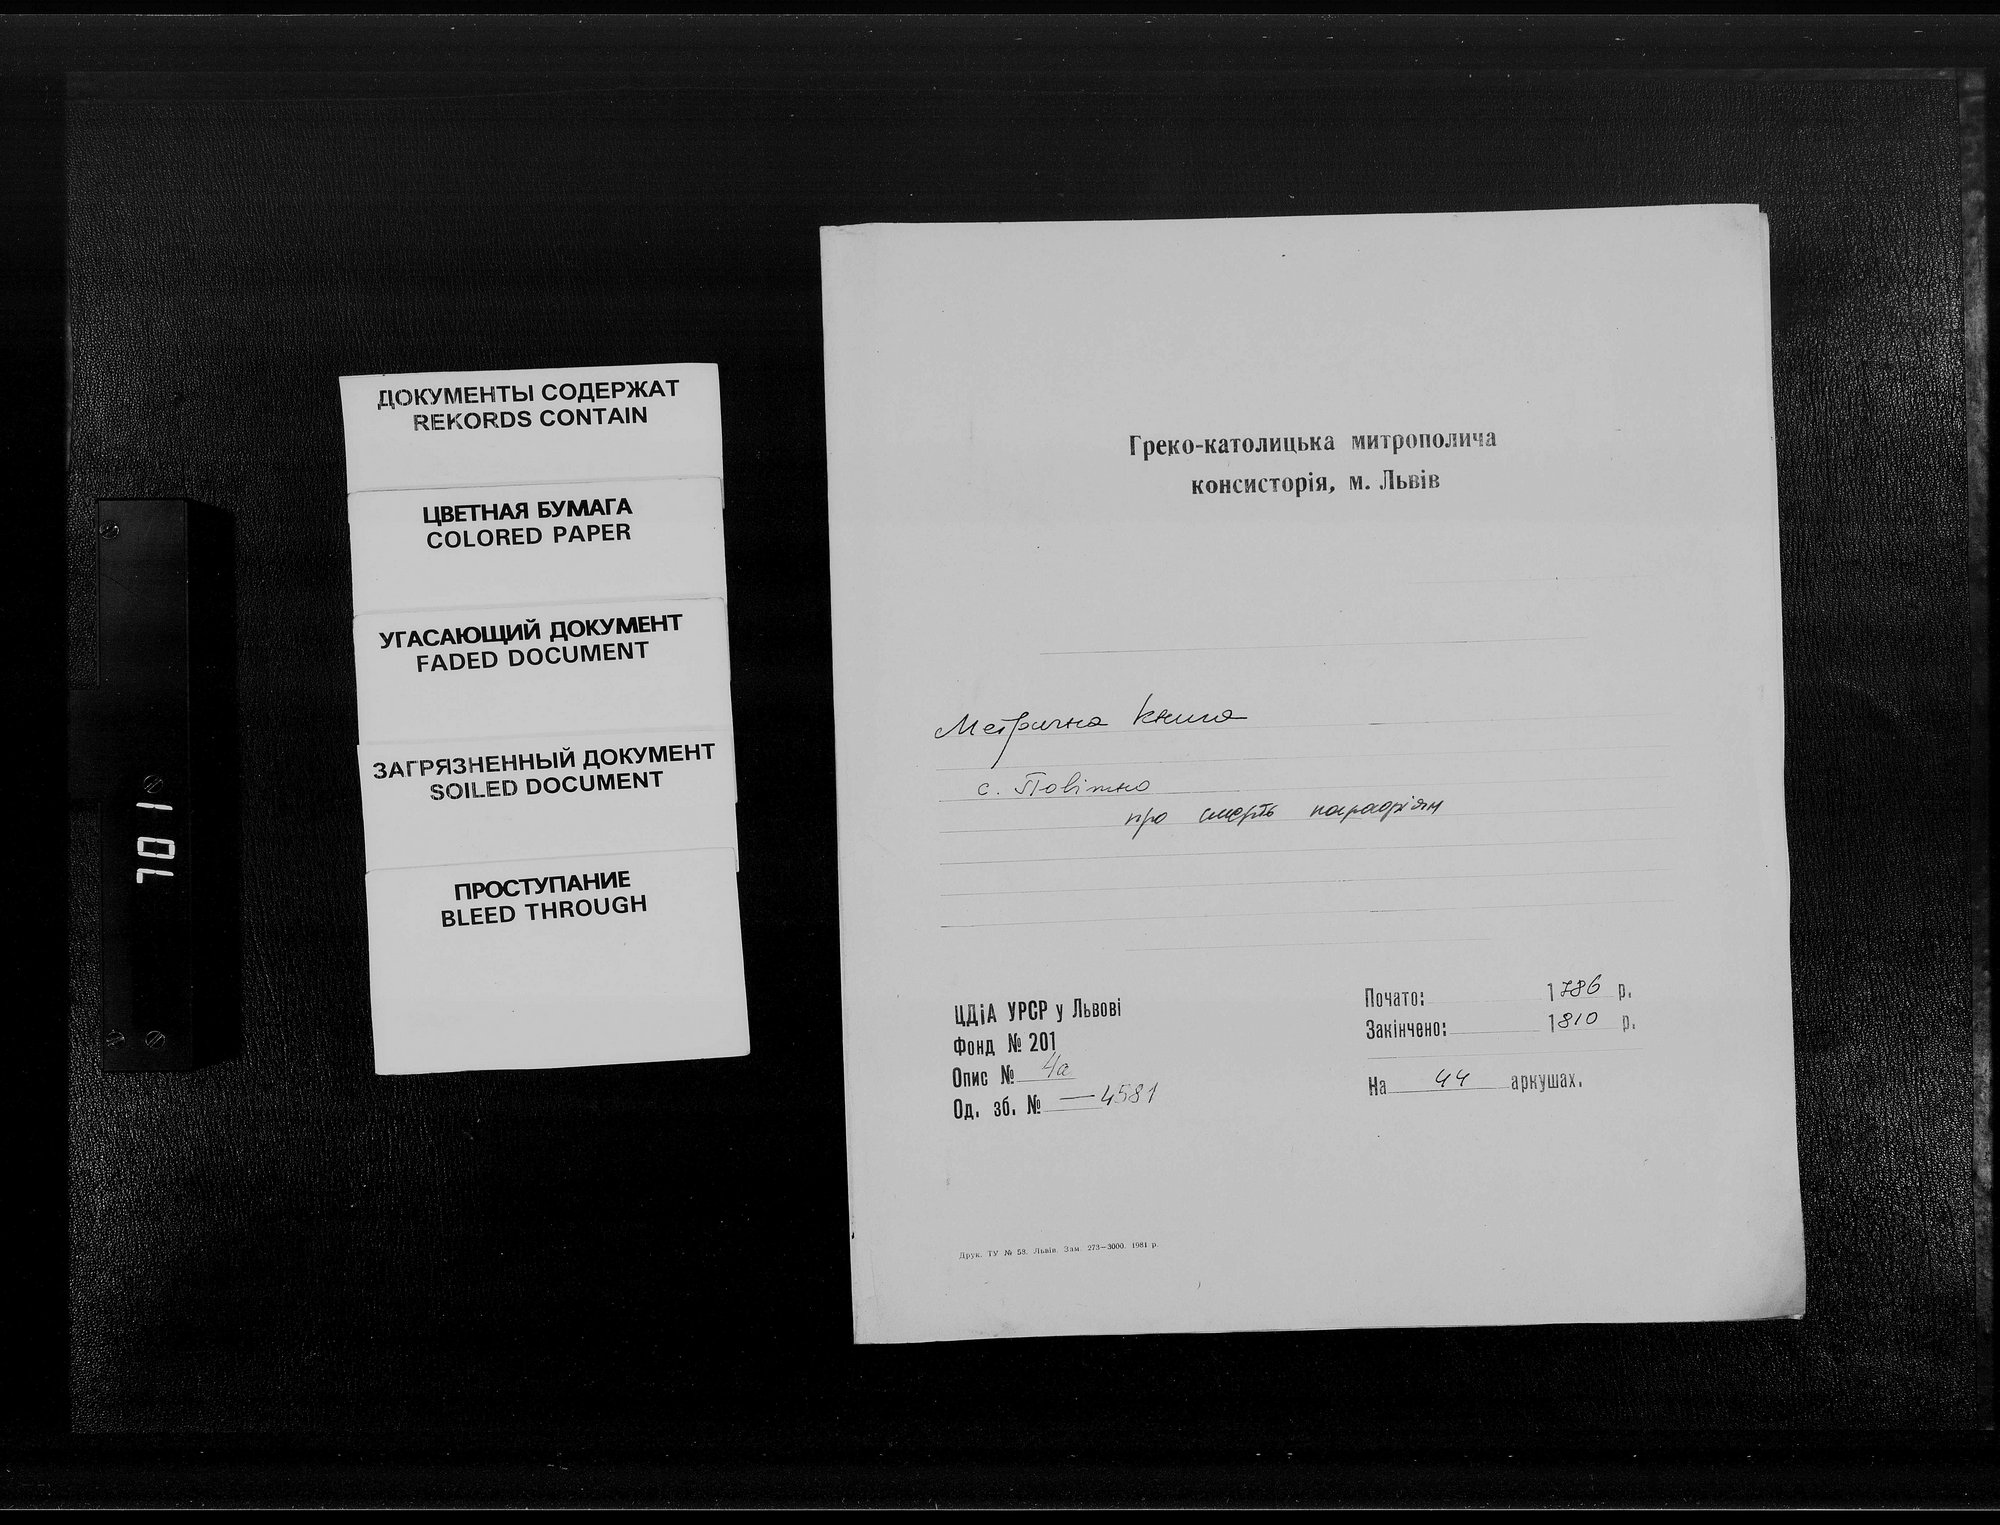 ДОКУМЕНТЫ СОДЕРЖАТ
REKORDS CONTAIN
ЦВЕТНАЯ БУМАГА
COLORED PAPER
УГАСАЮЩИЙ ДОКУМЕНТ
FADED DOCUMENT
ЗАГРЯЗНЕННЫЙ ДОКУМЕНТ
SOILED DOCUMENT
ПРОСТУПАНИЕ
BLEED THROUGH
Греко-католицька митрополича
консисторія, м. Львів
Метрична книга
с. Повітно
про смерть парафіян
ЦДІА УРСР у Львові
Фонд № 201
Опис № 4а
Од. зб. № — 4581
Почато: 1786 р.
Закінчено: 1810 р.
На 44 аркушах.
Друк. ТУ № 53. Львів. Зам. 273—3000. 1981 р.